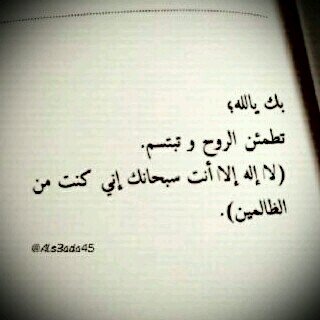 بك يالله؛
تطمئن الروح و تبتسم.
(لا إله إلا أنت سبحانك إني كنت من
الظالمين).
@Als3ada45